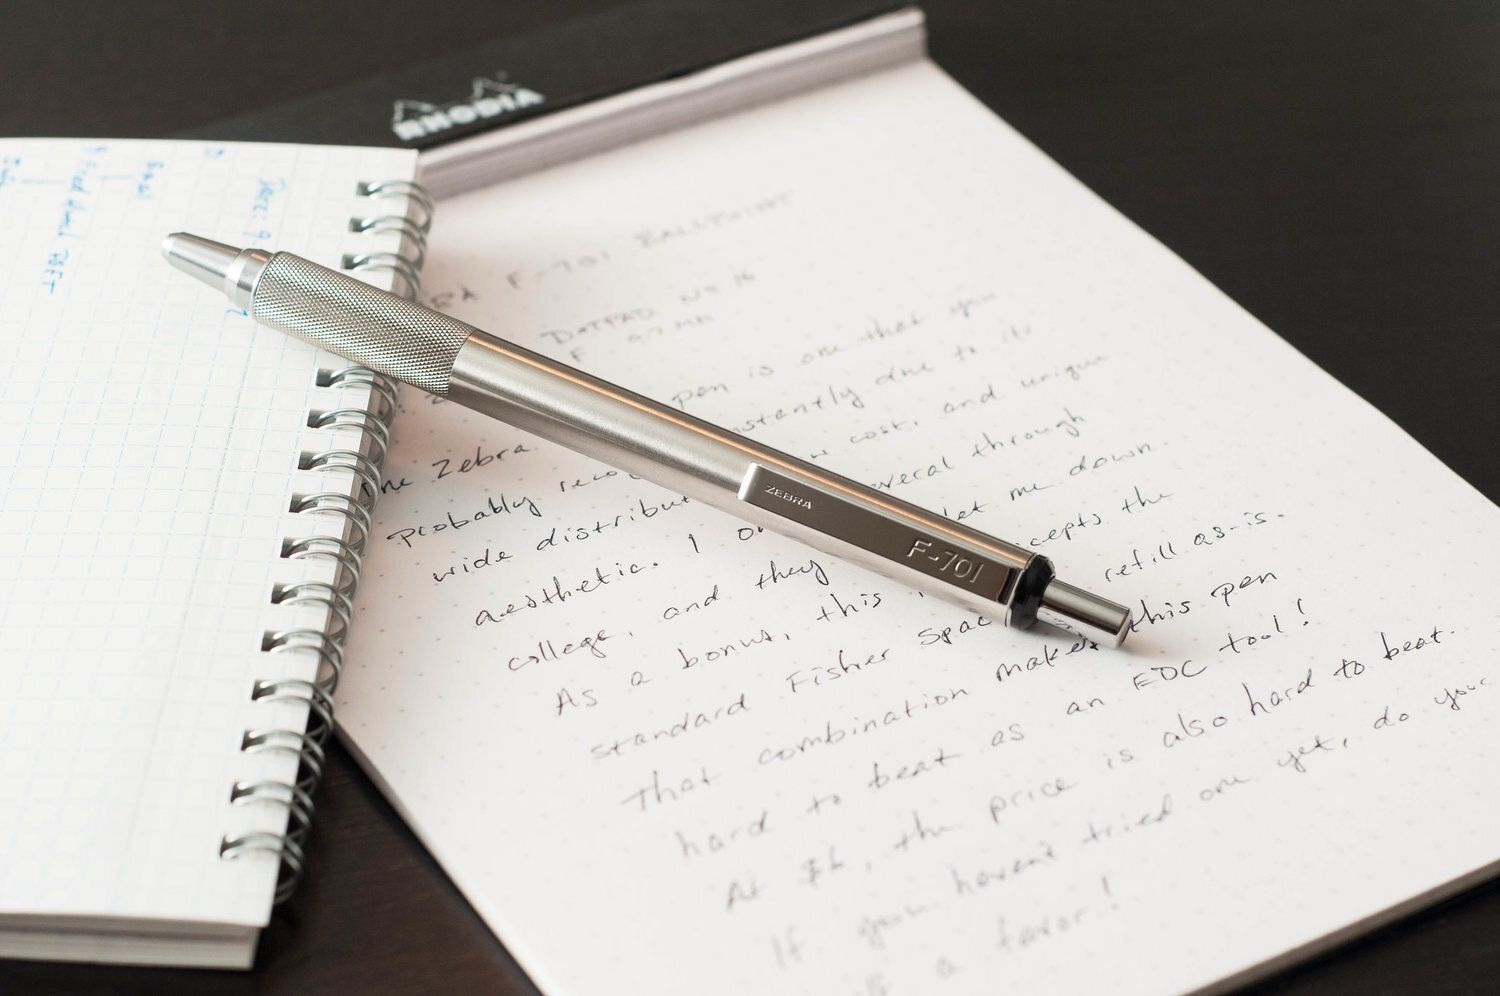 RHODIA
F-701 BALLPOINT
DOTPAD No 16
F 0.7 MM
pen is one that you
The Zebra
nstantly due to its
probably reco
cost, and unique
wide distribut
several through
aesthetic. I
let me down.
college, and they
cepts the
As a bonus, this
refill as-is.
standard Fisher Spac
That combination makes this pen
hard to beat as an EDC tool!
At $6, the price is also hard to beat.
If you haven't tried one yet, do your
a favor!
ZEBRA
F-701